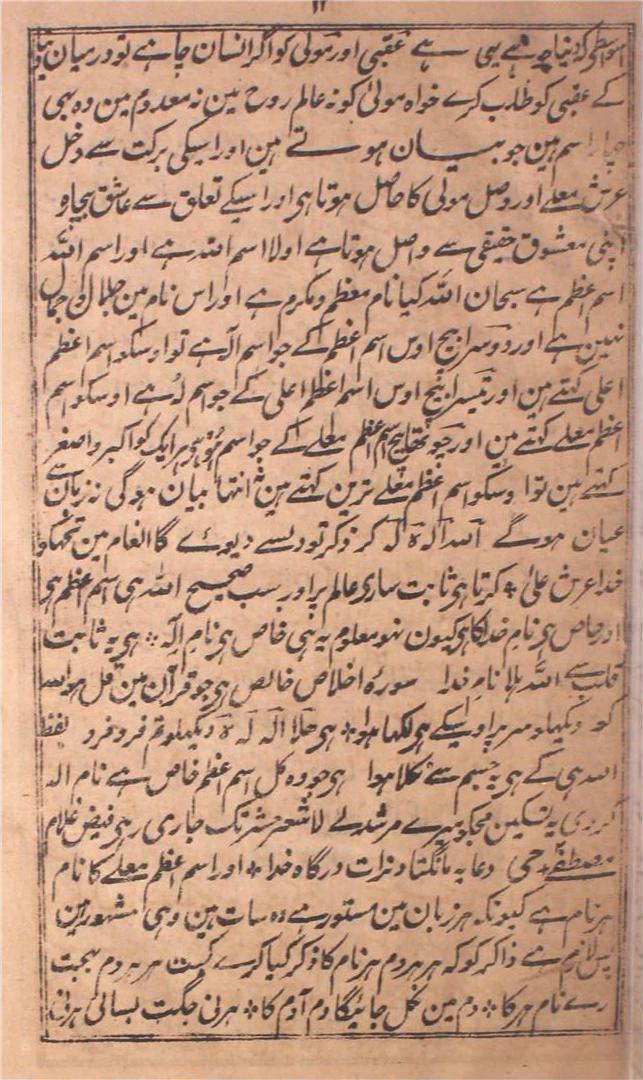 ۱۱
کہ دنیا ہے یہی ہے عقبی اور مولی کو اگر انسان چاہے تو درمیان
کے عقبی کو طلب کرے خواہ مولیٰ کو نہ عالم روح مین نہ معدوم مین وہ یہی
اسم ہین جو بیان ہوتے ہین اور اسیکی برکت سے دخل
عرش معلے اور وصل مولی کا حاصل ہوتا ہی اور اسیکے تعلق سے عاشق بیچارہ
اپنی معشوق حقیقی سے واصل ہوتا ہے اولا اسم اللہ ہے اور اسم اللہ
اسم اعظم ہے سبحان اللہ کیا نام معظم و مکرم ہے اور اس نام مین جلال و جمال
نہین ہے اور دوسرا بیچ اوس اسم اعظم کے جو اسم الہ ہے تو اوسکو اسم اعظم
اعلی کہتے ہین اور تیسرا بیچ اوس اسم اعظم اعلی کے جو اسم لہٗ ہے اوسکو اسم
اعظم معلے کہتے مین اور چوتھا بیچ اسم اعظم معلے کے جو اسم ہو ہر ایک کو اکبر و اصغر
کہتے ہین تو اوسکو اسم اعظم معلے ترین کہتے ہین نہ انتہا بیان ہوگی نہ زبان سے
عیان ہوگے اللہ الہ لہ ہ کر ذکر تو دیوے گا انعام مین تجھکو
خدا عرش علیٰ ٭ کرتا ہی ثابت ساری عالم پر اور سب صحیح اللہ ہی اسم اعظم ہی
اور خاص ہی نام خدا کا ہی کیون نہو معلوم یہ ہی خاص ہی نام الٓہ ٭ ہی یہ ثابت
قلب سے اللہ بلا نام خدا سورہ اخلاص خالص ہی جو قرآن مین قل ہو اللہ
کو دیکھا ہر پر اوسیکے ہی لکھا ہوا ٭ ہی الہ لہ ہ دیکھلو تم فرو فرو لفظ
اللہ ہی کے ہی یہ جسم سے نکلا ہوا ہی جو وہ کل اسم اعظم خاص ہے نام الہ
کر دی یہ تسکین مجکو میرے مرشد نے لا شعر حشر تک جاری رہی فیض غلام
مصطفےٰ ٭ دعا یہ مانگتا درگاہ خدا ٭ اور اسم اعظم معلے کا نام
ہر نام ہے کیونکہ ہر زبان مین مستور ہے وہ سات ہین وہی مشہور ہین
پس لازم ہے ذاکر کو کہ ہر دم ہر نام کا ذکر کیا کرے ہر ہر دم
رے نام ہر کا ٭ دم مین نکل جائیگا دم آدم کا ٭ ہرنی جگت بسائی ہرنی